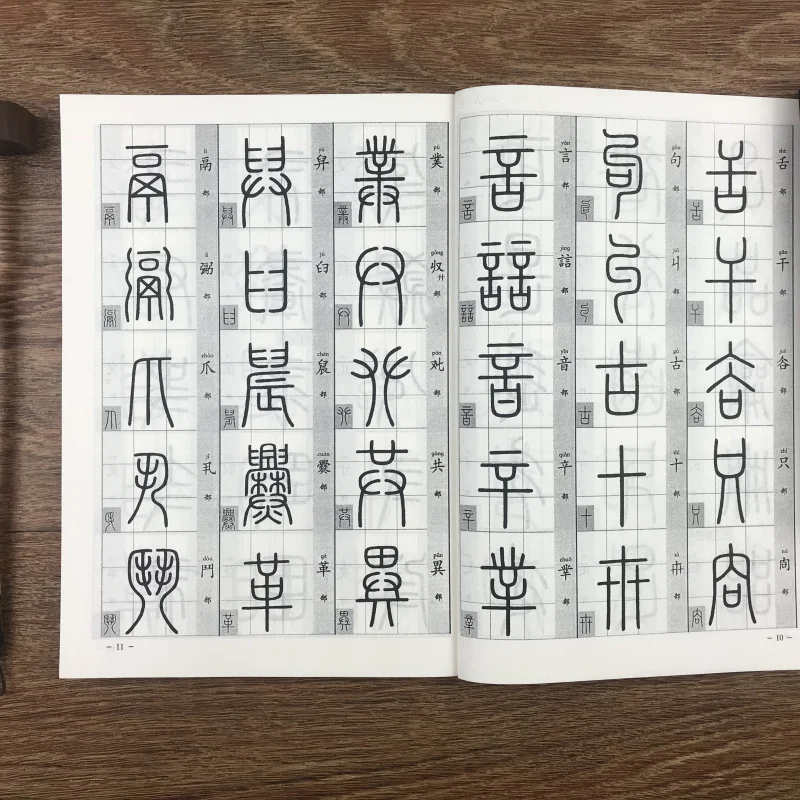 shé 舌 部
gān 干 部
jué 谷 部
zhǐ 只 部
nà 㕯 部
gōu 句 部
jiū 丩 部
gǔ 古 部
shí 十 部
sà 卅 部
yán 言 部
jìng 誩 部
yīn 音 部
qiān 䇂 部
zhuó 丵 部
- 10 -
pú 菐 部
gǒng 収 廾 部
pān 𠬜 部
gòng 共 部
異 部
yú 舁 部
jú 臼 部
chén 䢅 部
cuàn 爨 部
gé 革 部
lì 鬲 部
lì 弼 部
zhǎo 爪 部
jǐ 丮 部
dòu 鬥 部
- 11 -